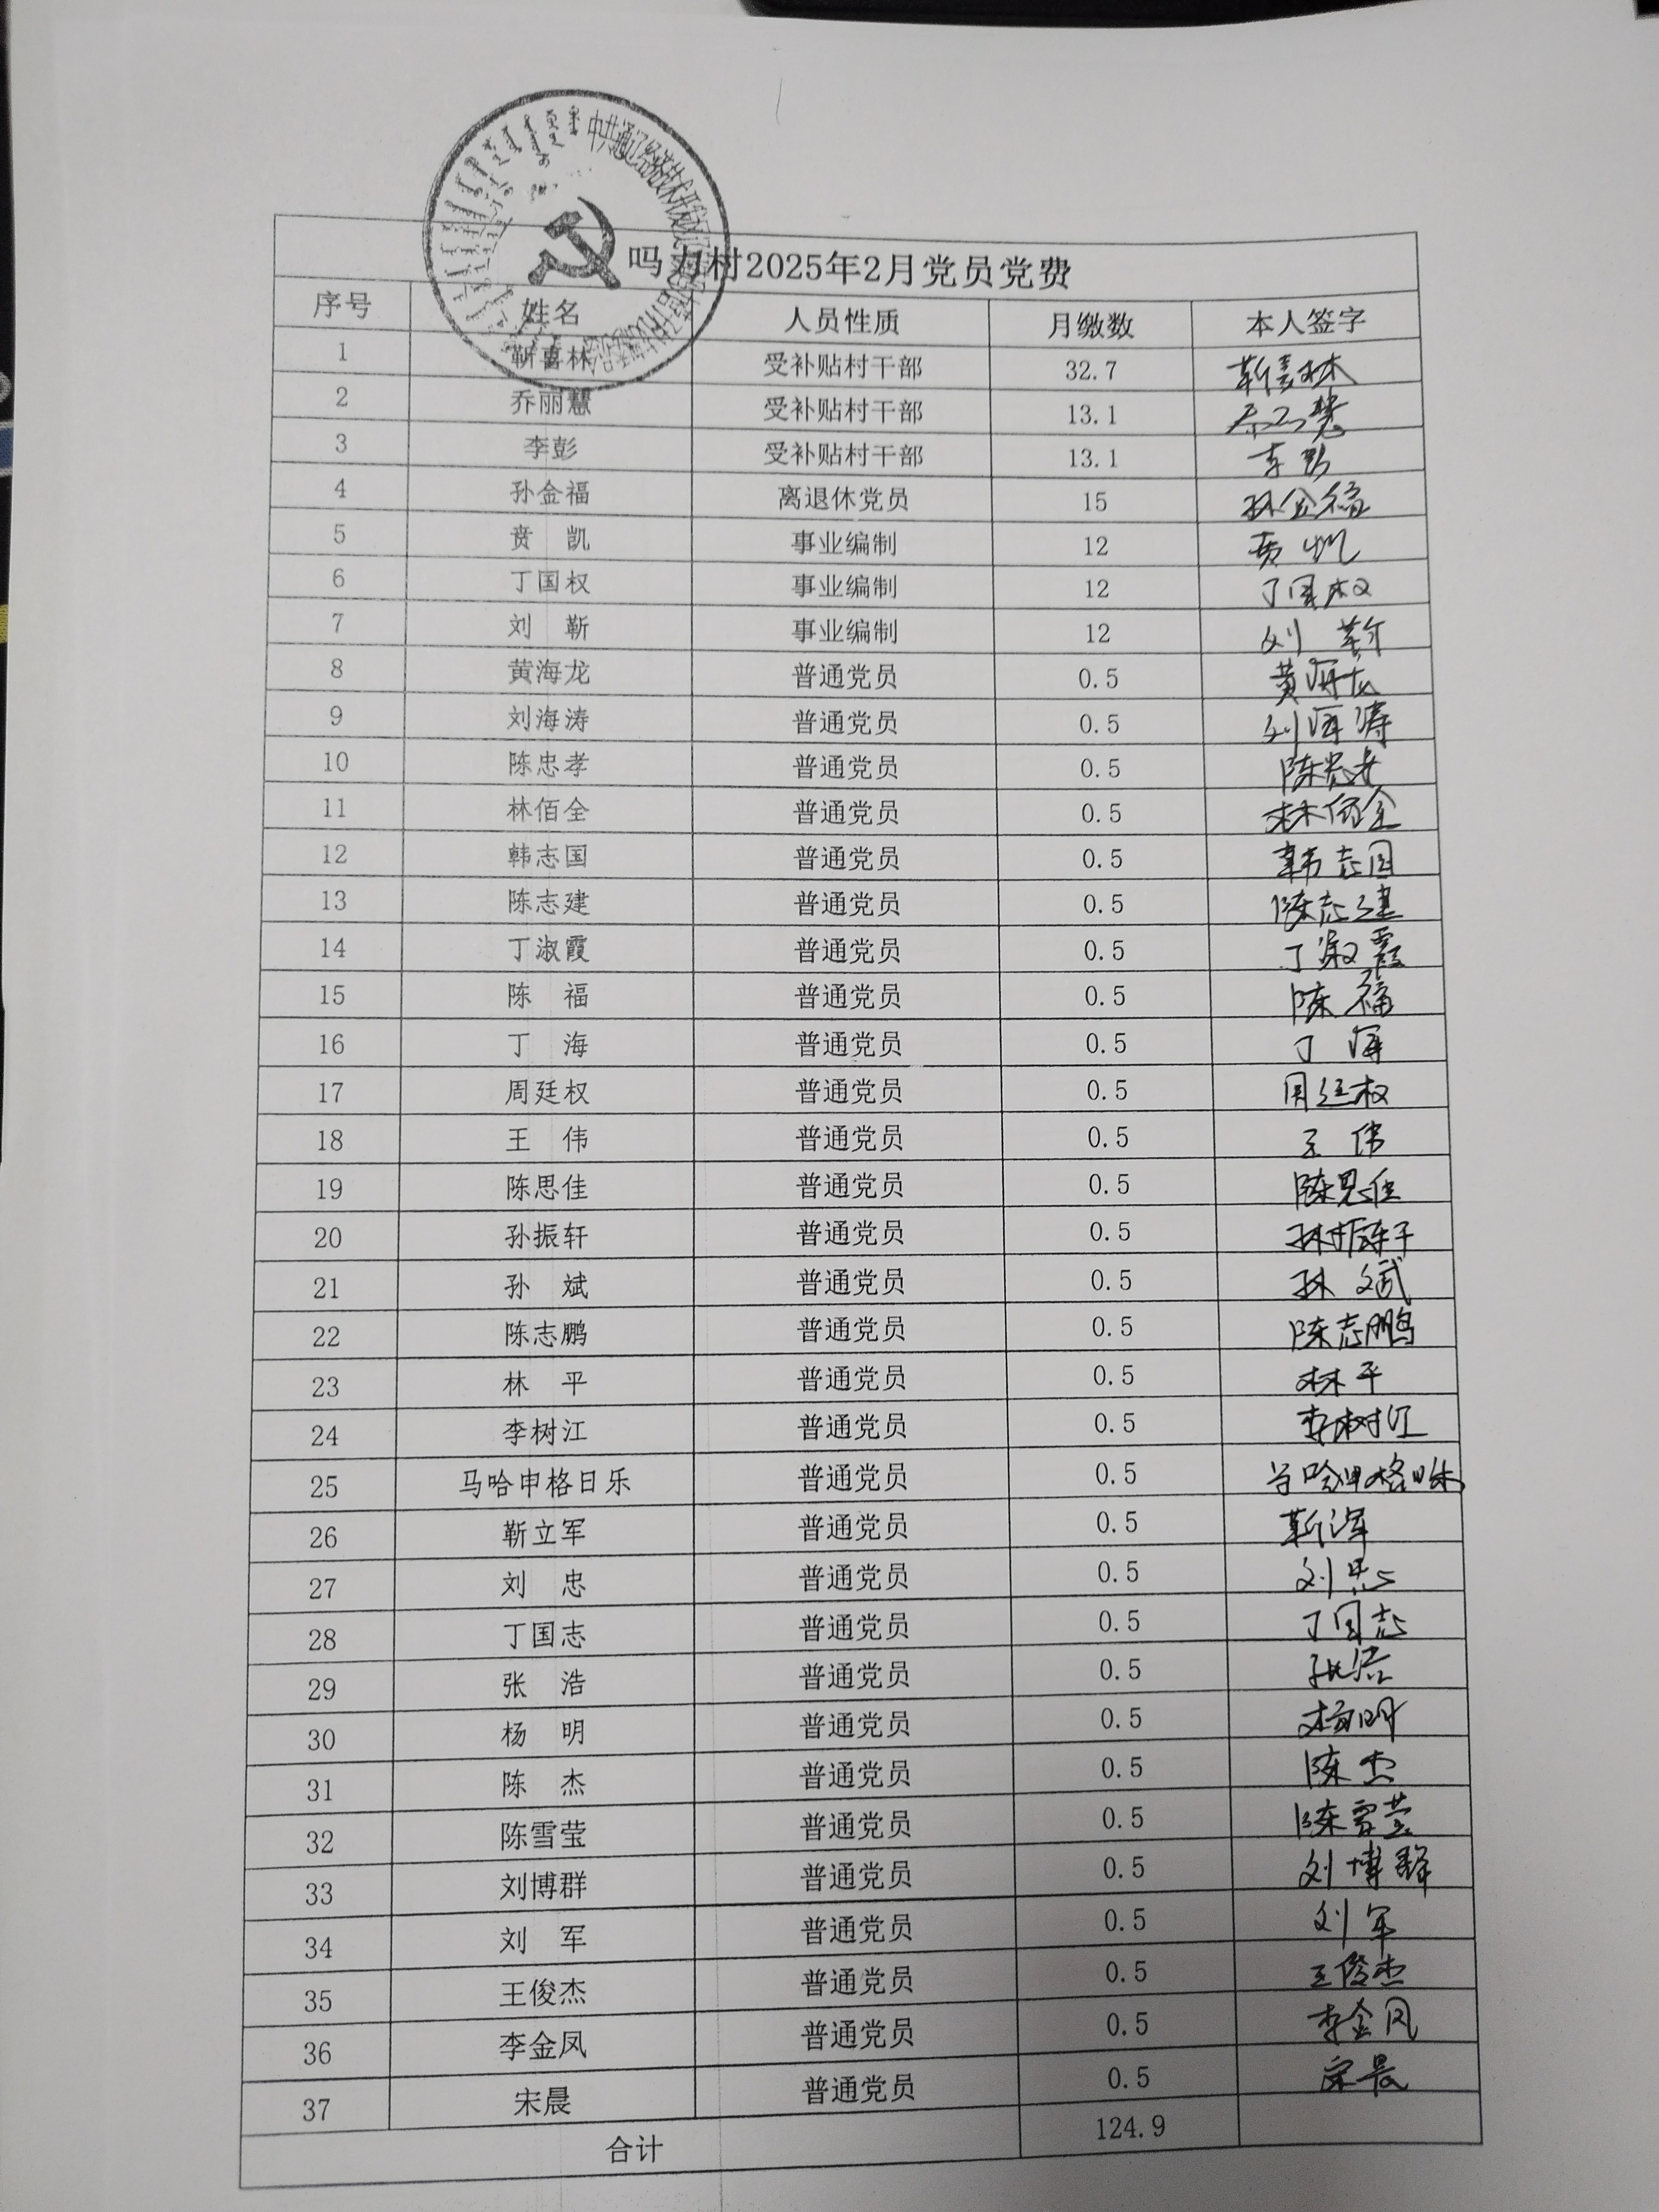 中共通辽经济技术开发区
吗力村2025年2月党员党费
序号 姓名 人员性质 月缴数 本人签字
1 靳喜林 受补贴村干部 32.7 靳喜林
2 乔丽慧 受补贴村干部 13.1 乔丽慧
3 李彭 受补贴村干部 13.1 李彭
4 孙金福 离退休党员 15 孙金福
5 贲 凯 事业编制 12 贲凯
6 丁国权 事业编制 12 丁国权
7 刘 靳 事业编制 12 刘 靳
8 黄海龙 普通党员 0.5 黄海龙
9 刘海涛 普通党员 0.5 刘海涛
10 陈忠孝 普通党员 0.5 陈忠孝
11 林佰全 普通党员 0.5 林佰全
12 韩志国 普通党员 0.5 韩志国
13 陈志建 普通党员 0.5 陈志建
14 丁淑霞 普通党员 0.5 丁淑霞
15 陈 福 普通党员 0.5 陈 福
16 丁 海 普通党员 0.5 丁 海
17 周廷权 普通党员 0.5 周廷权
18 王 伟 普通党员 0.5 王 伟
19 陈思佳 普通党员 0.5 陈思佳
20 孙振轩 普通党员 0.5 孙振轩
21 孙 斌 普通党员 0.5 孙 斌
22 陈志鹏 普通党员 0.5 陈志鹏
23 林 平 普通党员 0.5 林平
24 李树江 普通党员 0.5 李树江
25 马哈申格日乐 普通党员 0.5 马哈申格日乐
26 靳立军 普通党员 0.5 靳立军
27 刘 忠 普通党员 0.5 刘忠
28 丁国志 普通党员 0.5 丁国志
29 张 浩 普通党员 0.5 张浩
30 杨 明 普通党员 0.5 杨明
31 陈 杰 普通党员 0.5 陈杰
32 陈雪莹 普通党员 0.5 陈雪莹
33 刘博群 普通党员 0.5 刘博群
34 刘 军 普通党员 0.5 刘军
35 王俊杰 普通党员 0.5 王俊杰
36 李金凤 普通党员 0.5 李金凤
37 宋晨 普通党员 0.5 宋晨
合计 124.9